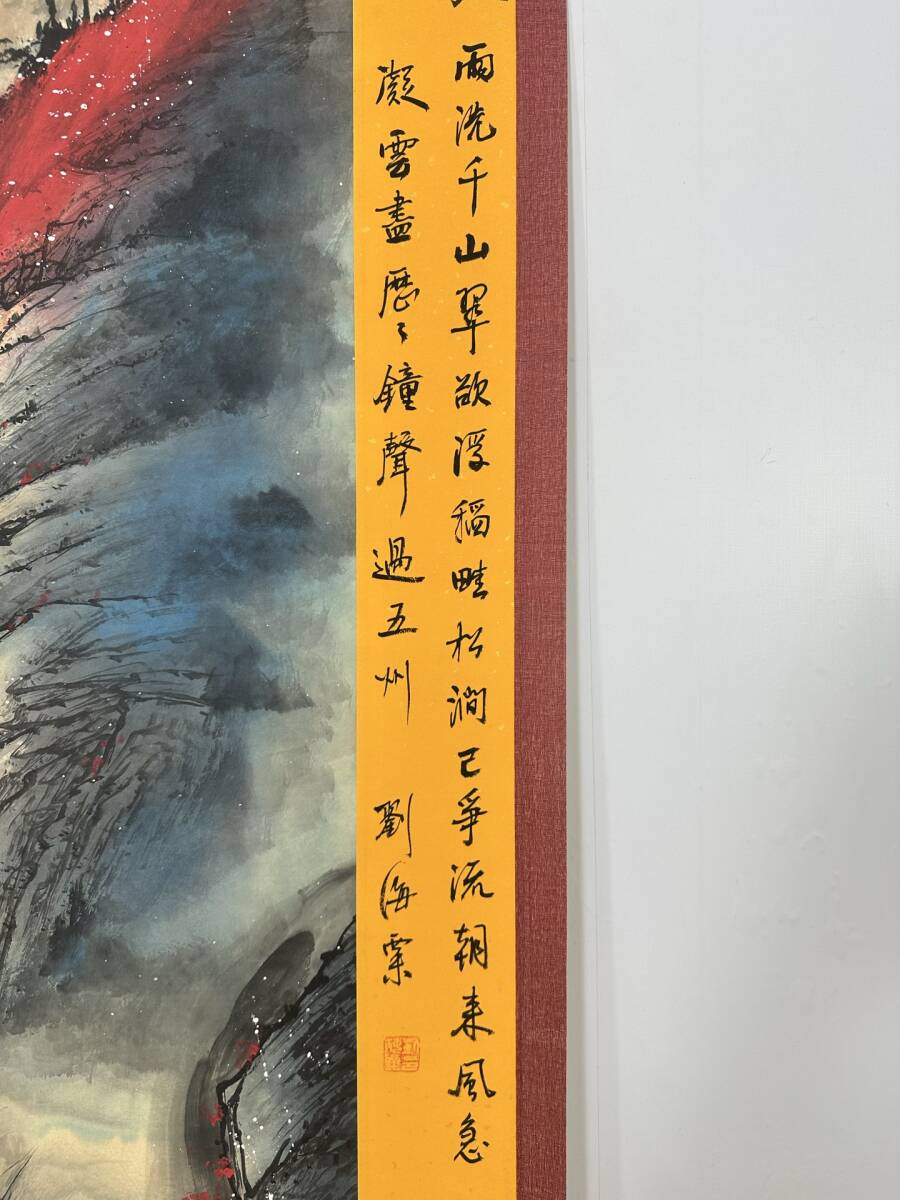 雨洗千山翠欲浮稻畦松澗已爭流朝来風急
凝雲盡歷〻鐘聲過五州 劉海粟